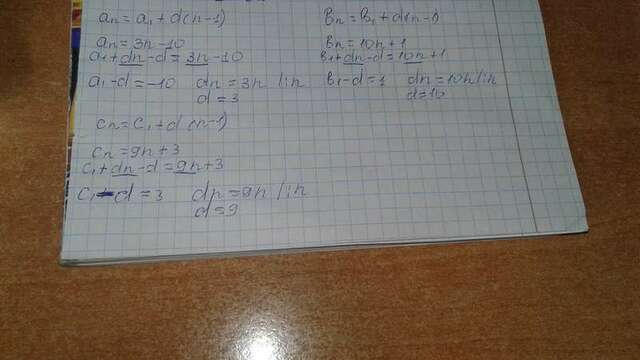 aₙ = a₁ + d(n-1)
aₙ = 3n-10
a₁+dn-d = 3n-10
a₁-d = -10 dn = 3n |:n
d = 3
bₙ = b₁ + d(n-1)
bₙ = 10n+1
b₁+dn-d = 10n+1
b₁-d = 1 dn = 10n |:n
d = 10
cₙ = c₁ + d(n-1)
cₙ = 9n+3
c₁+dn-d = 9n+3
c₁-d = 3 dn = 9n |:n
d = 9